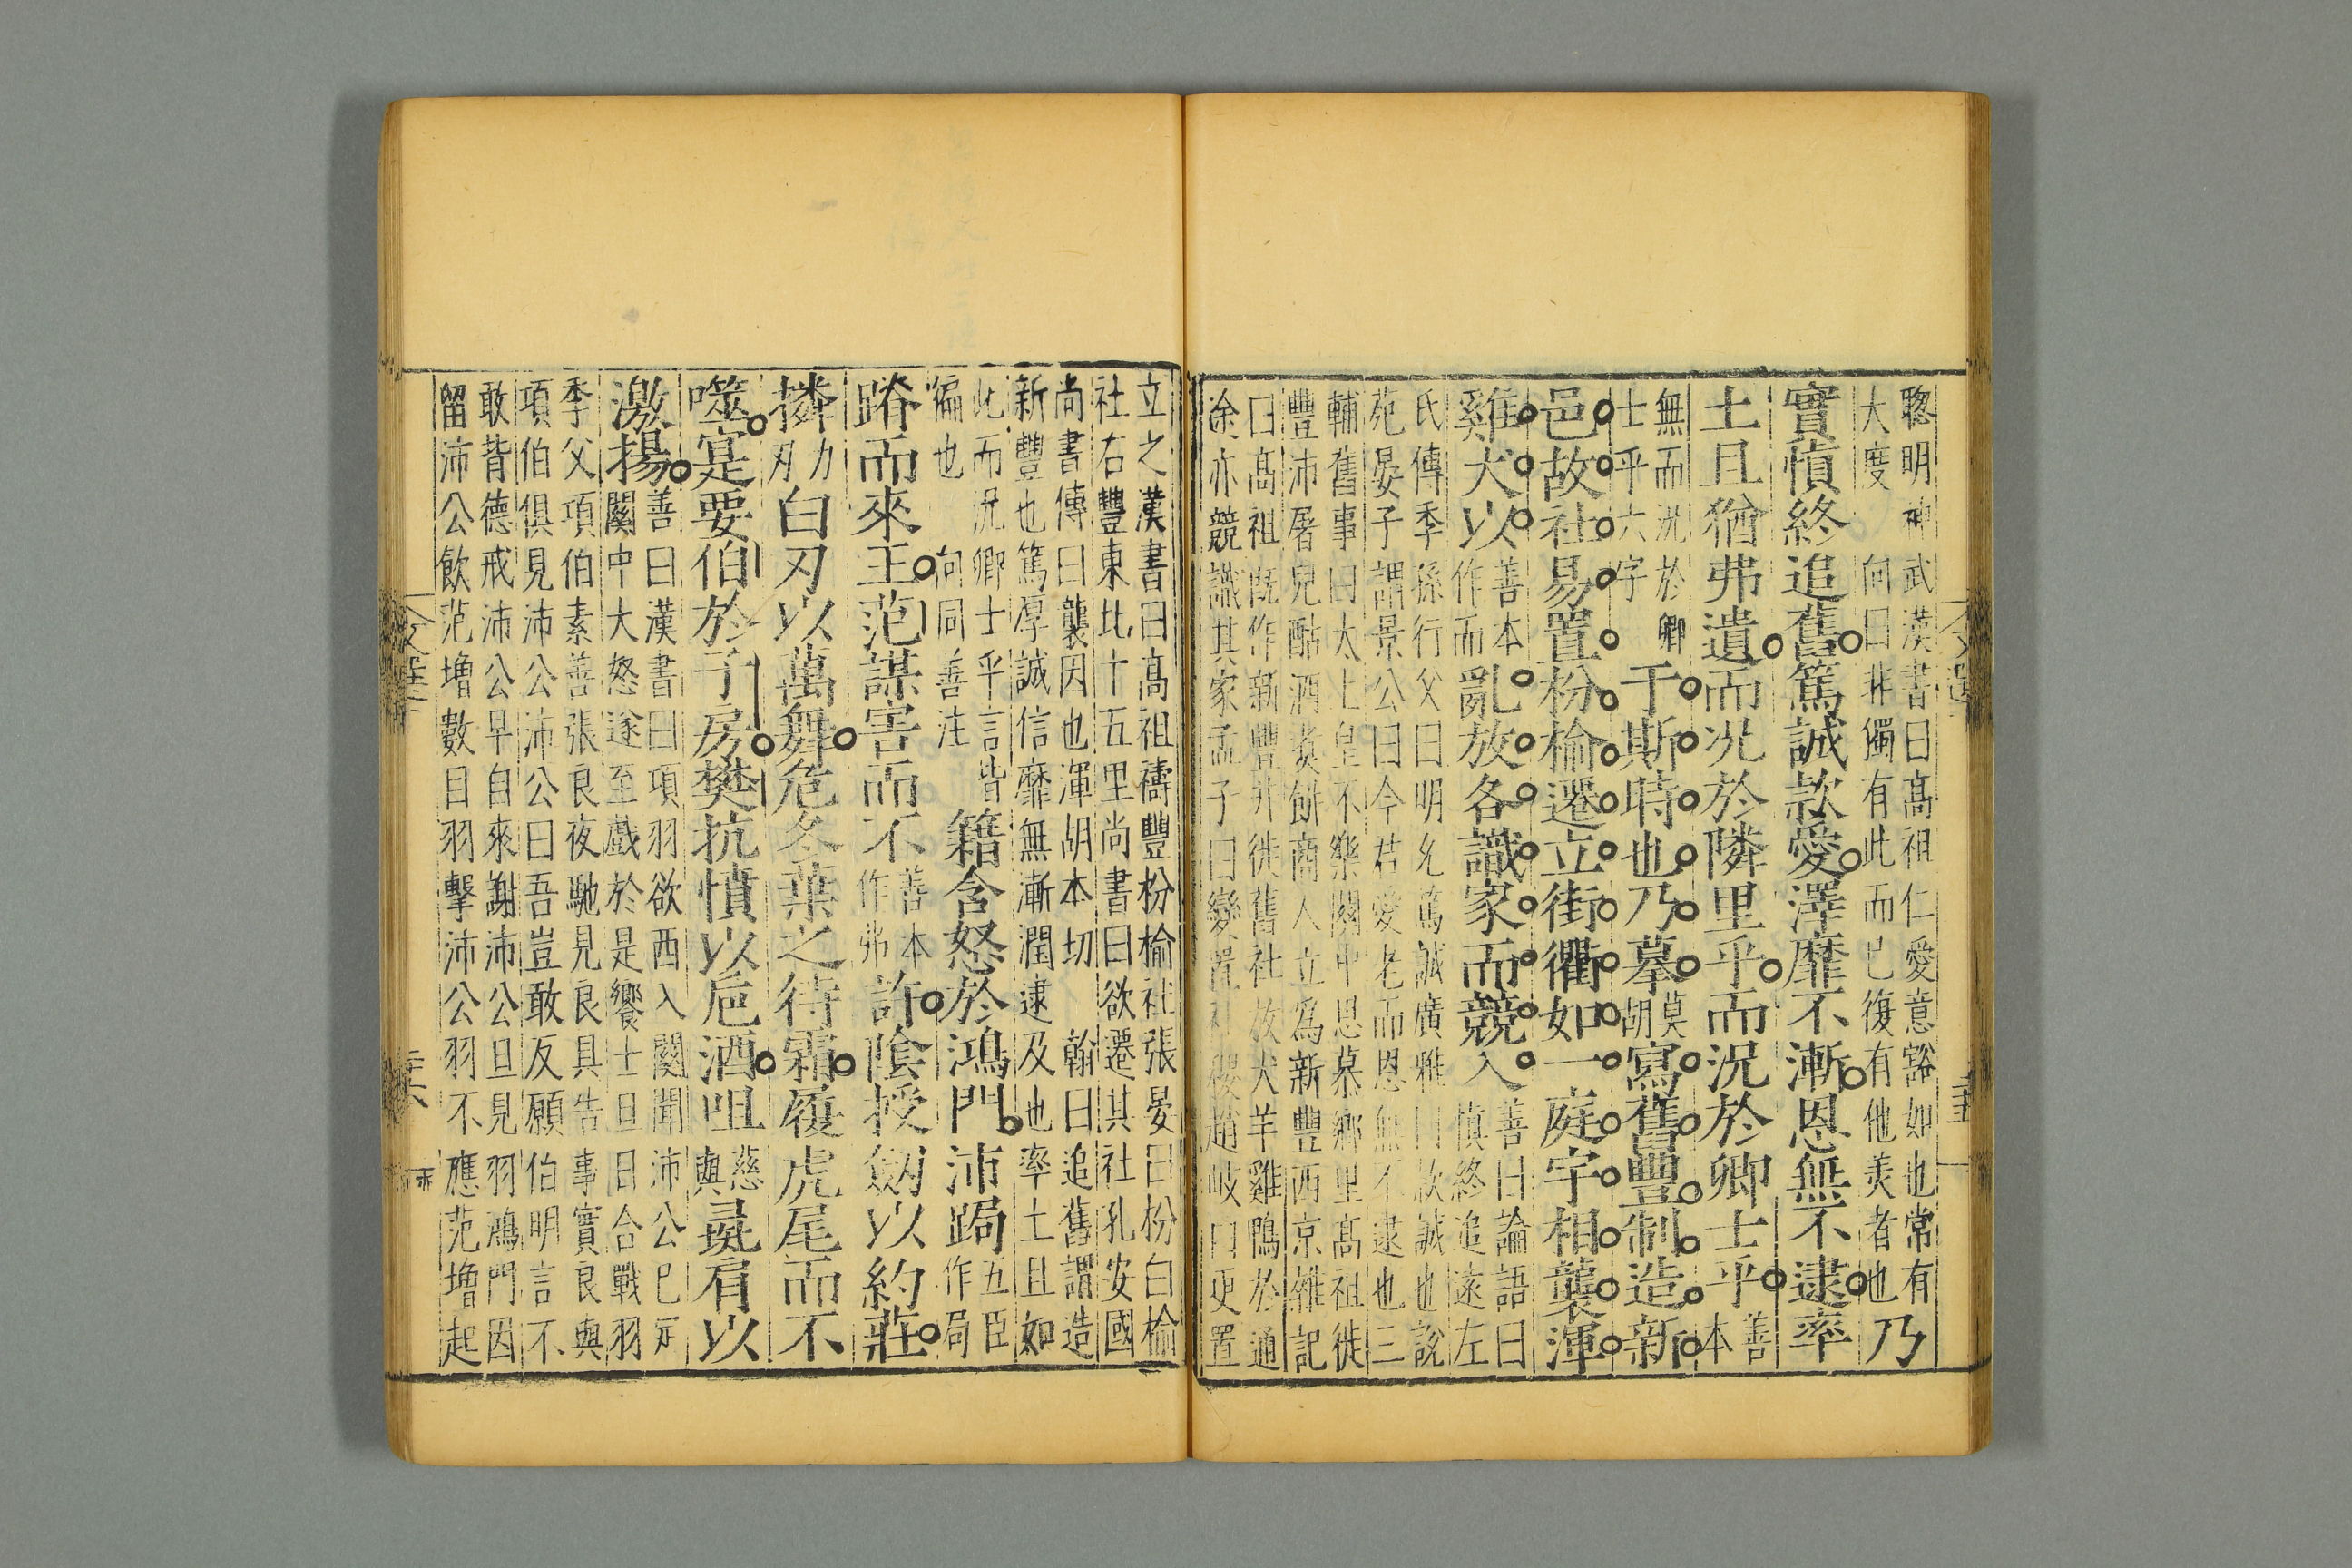 聦明神武漢書曰高祖仁愛意豁如也常有
大度　向曰非獨有此而已復有他美者也乃
實慎終追舊篤誠款愛澤靡不漸恩無不逮率
土且猶弗遺而況於隣里乎而況於卿士乎善本
無而況於卿士乎六字于斯時也乃摹莫胡寫舊豐制造新
邑故社易置枌榆遷立街衢如一庭宇相襲渾
雞犬以善本作而亂放各識家而競入善曰論語曰慎終追遠左
氏傳季孫行父曰明允篤誠廣雅曰款誠也說
苑晏子謂景公曰今君愛老而恩無不逮也三
輔舊事曰太上皇不樂關中思慕鄉里高祖徙
豐沛屠兒酤酒煑餅商人立為新豐西京雜記
曰高祖既作新豐并徙舊社放犬羊雞鴨於通
塗亦競識其家孟子曰變置社稷趙岐曰更置
立之漢書曰高祖禱豐枌榆社張晏曰枌白榆
社右豐東北十五里尚書曰欲遷其社孔安國
尚書傳曰襲因也渾胡本切　翰曰追舊謂造
新豐也篤厚誠信靡無漸潤逮及也率土且如
此而況卿士乎言皆偏也　向同善注籍含怒於鴻門沛跼五臣作局
蹐而來王范謀害而不善本作弗許陰授劔以約莊
撛力刃白刃以萬舞危冬葉之待霜履虎尾而不
噬寔要伯於子房樊抗憤以巵酒咀慈與彘肩以
激揚善曰漢書曰項羽欲西入關聞沛公已定關中大怒遂至戲於是饗士旦日合戰羽
季父項伯素善張良夜馳見良具告事實良與
項伯俱見沛公沛公曰吾豈敢反願伯明言不
敢背德戒沛公早自來謝沛公旦見羽鴻門因
留沛公飲范增數目羽擊沛公羽不應范增起